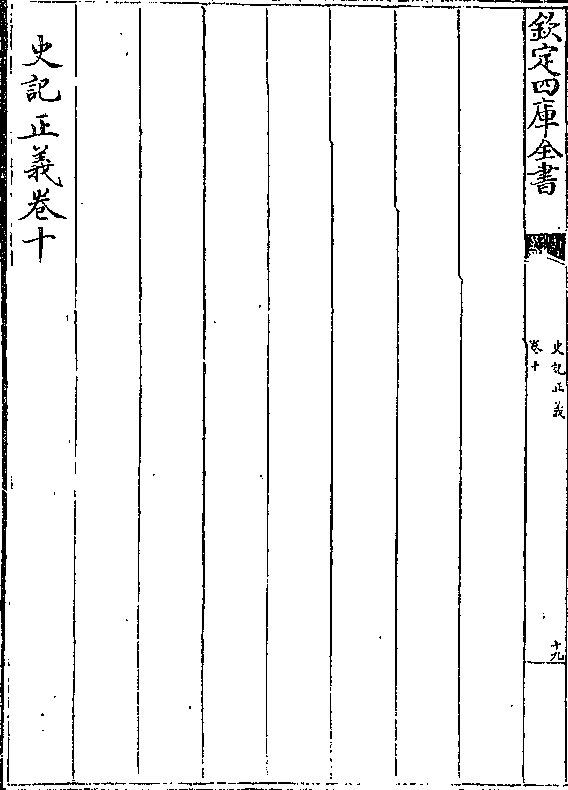 欽定四庫全書
史記正義
卷十
十九
史記正義卷十